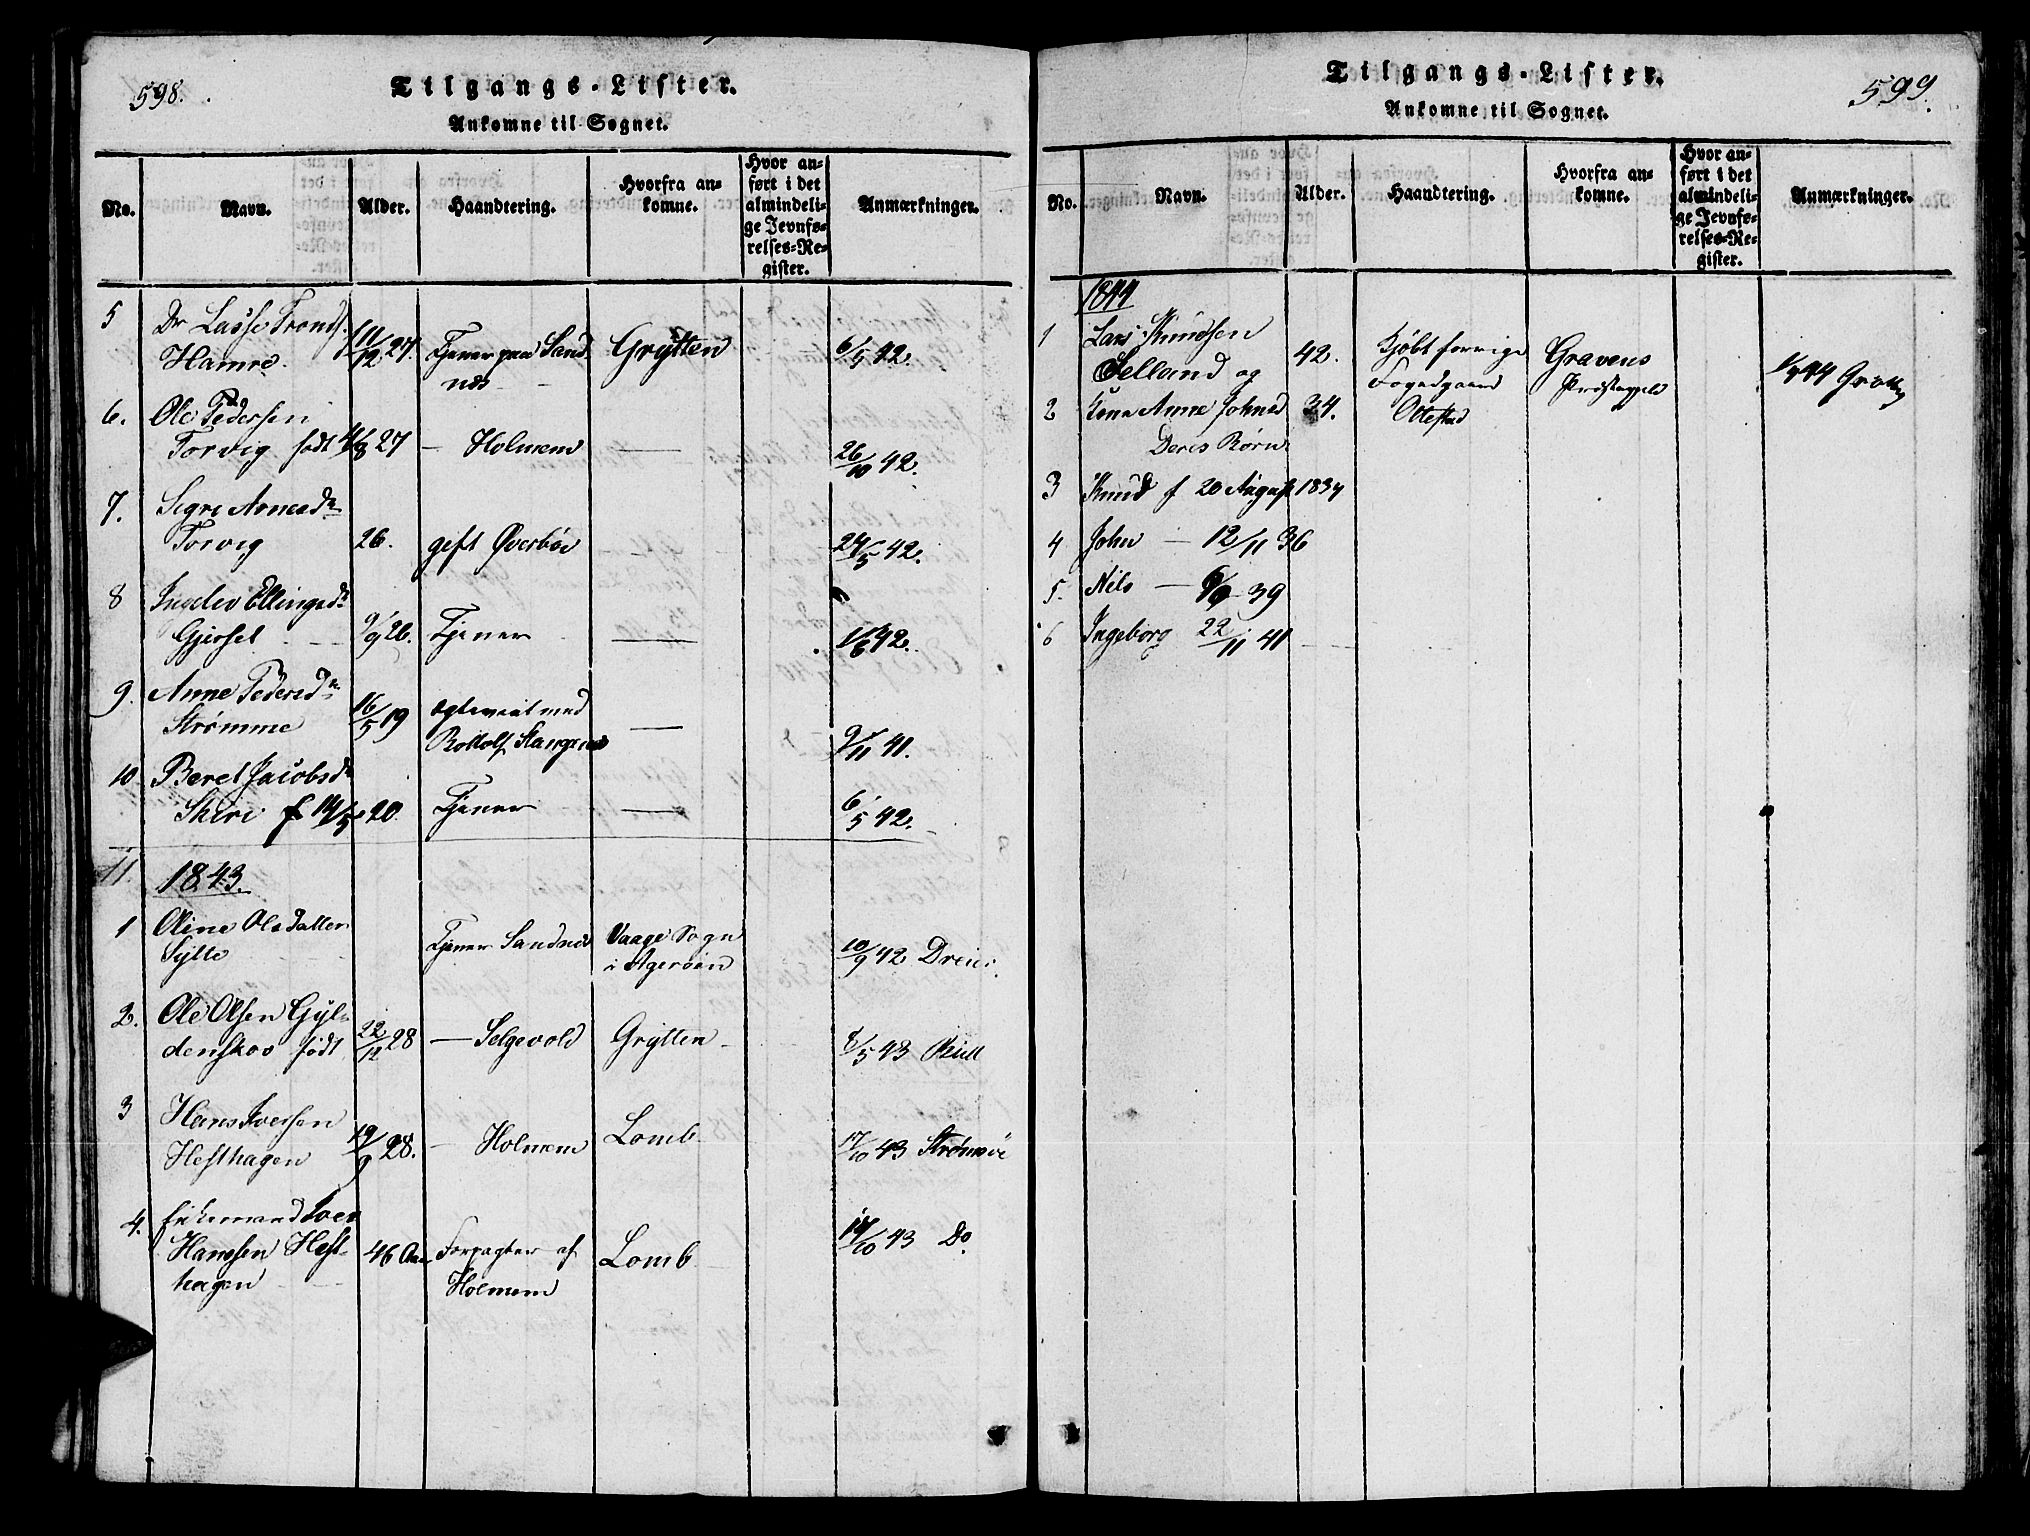 598.
Tilgangs-Lister.
Ankomne til Sognet.
No. Navn. Alder. Haandtering. Hvorfra ankomne. Hvor anført i det almindelige Jevnførelses-Register. Anmærkninger.
5 Dr Lasse Tronds.
Hamre. 11/12 27. Tjener paa Sandnæs Grytten 6/5 42.
6. Ole Pedersen
Torvig født 4/8 27 — Holmem — 26/10 42.
7. Segre Arnesdr
Torvig 26. gift Øverbøe — 24/5 42.
8 Ingelev Ellingsdr
Gjersel 9/9 26. Tjener — 1/6 42.
9. Anne Pedersdr
Strømme 16/5 19 Egteviet med
Rollolf Stangenes — 9/11 41.
10 Beret Jacobsdr
Skiri f 14/5 20 Tjener — 6/5 42.
11. 1843.
1 Oline Olsdatter
Sylte Tjener Sandnes Vaage Sogn
i Agerøen 10/9 42 Dreier.
2. Ole Olsen Gyl-
denskov født 22/12 28 — Selgevold Grytten 6/5 43
3 Hans Iversen
Hesthagen 19/9 28. — Holmem Lomb. 17/10 43 Strømsøe
4. Enkemand Iver
Hanssen Hest-
hagen 46 Aar Forpagter af
Holmem Lomb 17/10 43 Do
599.
Tilgangs-Lister.
Ankomne til Sognet.
No. Navn. Alder. Haandtering. Hvorfra ankomne. Hvor anført i det almindelige Jevnførelses-Register. Anmærkninger.
1844
1 Lars Knudsen
Selland og 42. Kjøbt forrige
Fogedgaard
Ottestad Gravens
Præstegjeld 44
2 Kone Anne Johnsd 34.
Deres Børn
3 Knud f 20 August 1834
4 John — 12/11 36
5. Nils — 39
6 Ingeborg 22/11 41